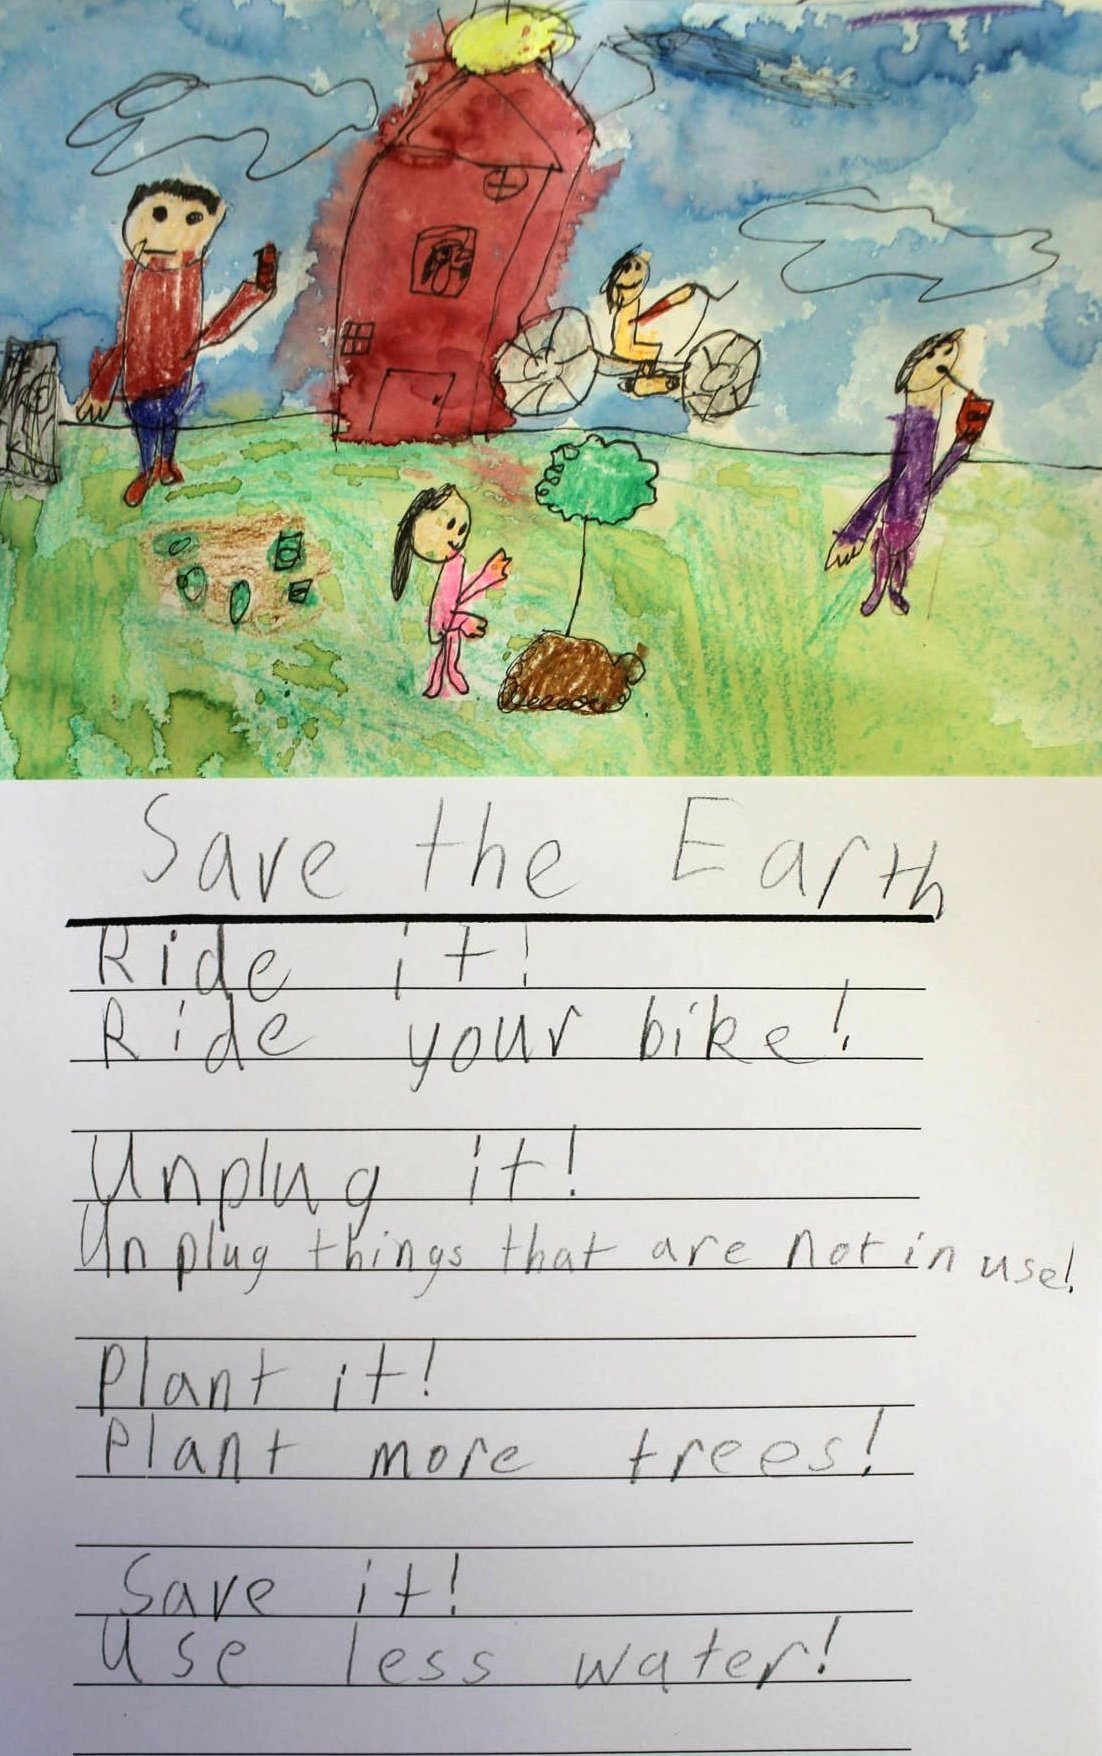 Save the Earth
Ride it!
Ride your bike!
Unplug it!
Unplug things that are not in use!
Plant it!
Plant more trees!
Save it!
Use less water!